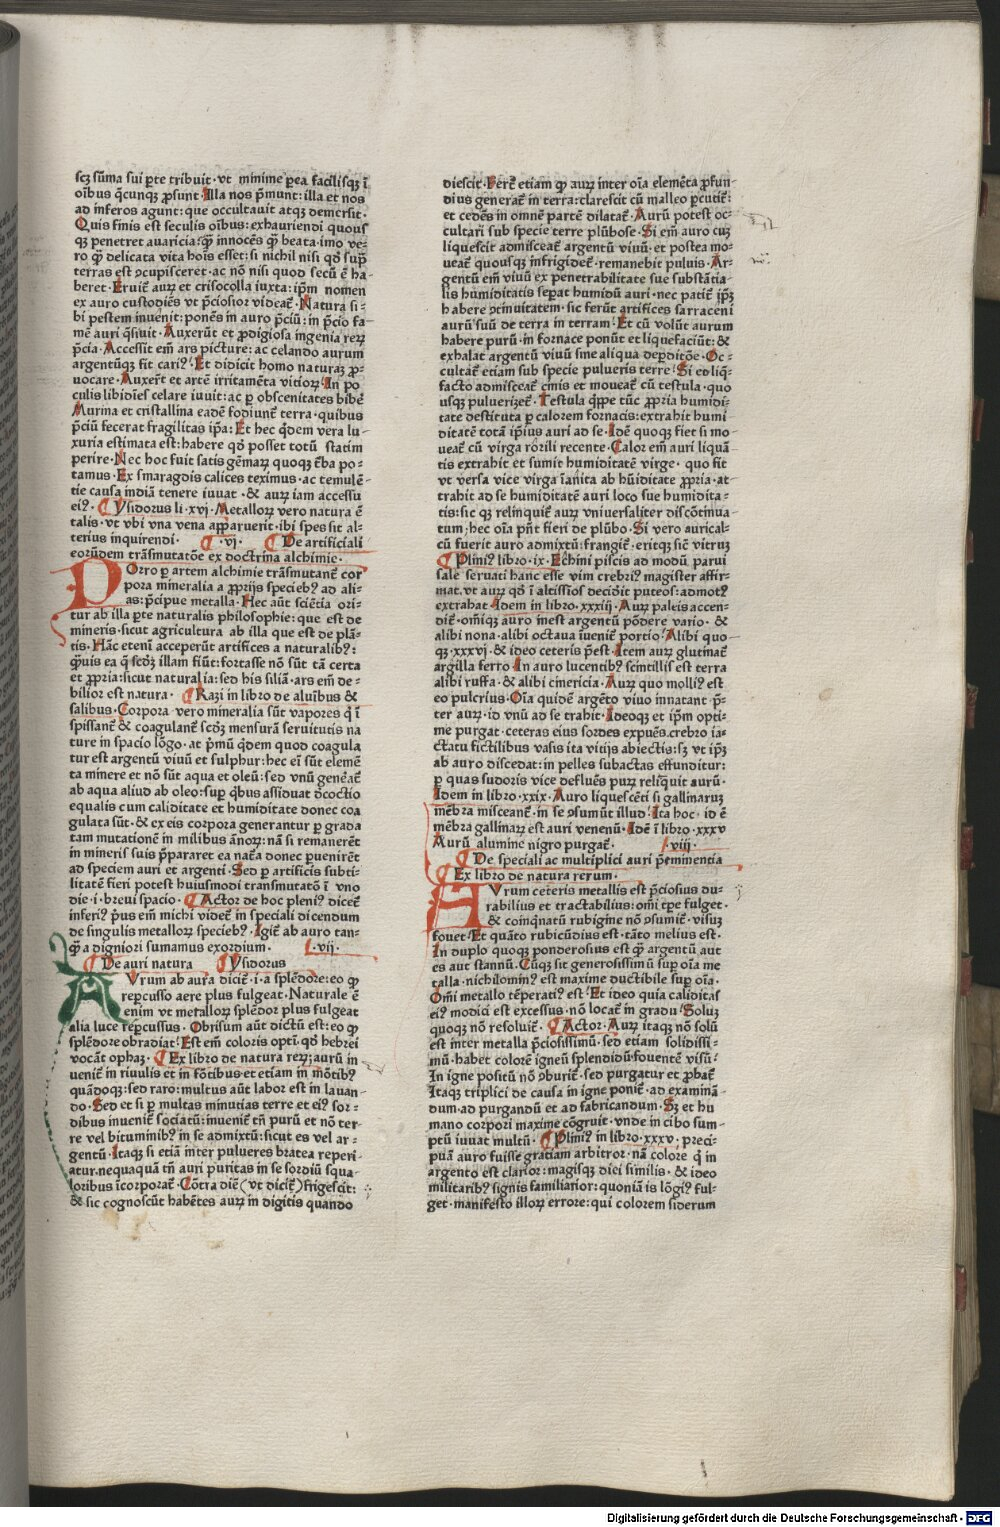 scꝫ sūma sui ꝑte tribuit· vt minime ꝑea facilisqꝫ ī
oībus q̄cunqꝫ ꝓsunt Illa nos p̄munt: illa et nos
ad inferos agunt: que occultauit atqꝫ demersit·
Quis finis est seculis oībus: exhauriendi quousꝫ
qꝫ penetret auaricia: qͣꝫ innocēs qͣꝫ beata· imo ve-
ro qͣꝫ delicata vita hoīs esset: si nichil nisi qď suꝑ
terras est ↄcupisceret· ac nō nisi quod secū ē ha-
beret· Eruiť auꝝ et crisocolla iuxta: ip̄m nomen
ex auro custodiēs vt p̄ciosior videať· Natura si-
bi pestem inuenit: ponēs in auro p̄ciū: in p̄cio fa-
mē auri q̄siuit· Auxerūt et ꝓdigiosa ingenia reꝝ
p̄cia· Accessit em̄ ars picture: ac celando aurum
argentūqꝫ fit cariꝰ· Et didicit homo naturaꝫ ꝓ-
uocare· Auxerť et artē irritamēta vitioꝝ· In po
culis libidīes celare iuuit: ac ꝑ obscenitates bibē
Murina et cristallina eadē fodiunť terra· quibus
p̄ciū fecerat fragilitas ip̄a: Et hec q̄dem vera lu-
xuria estimata est: habere qď posset totū statim
perire· Nec hoc fuit satis gēmaꝝ quoqꝫ t̄ba po-
tamus· Ex smaragdis calices teximus· ac temulē-
tie causa indiā tenere iuuat· & auꝝ iam accessu
eiꝰ· Ysidorus li·xvi· Metalloꝝ vero natura ē
talis· vt vbi vna vena apparuerit· ibi spes sit al-
terius inquirendi· ·vi· De artificiali
eorūdem trāsmutatōe ex doctrina alchimie·
POrro ꝑ artem alchimie trāsmutanť cor
pora mineralia a ꝓprijs speciebꝰ ad ali-
as: p̄cipue metalla· Hec aūt sciētia ori-
tur ab illa ꝑte naturalis philosophie: que est de
mineris· sicut agricultura ab illa que est de plā-
tis· Hāc etenī acceperūt artifices a naturalibꝰ:
qͣuis ea q̄ scďꝫ illam fiūt: fortasse nō sūt tā certa
et ꝓpria: sicut naturalia: sed his siliā· ars em̄ de-
bilior est natura· Razi in libro de aluībus &
salibus· Corpora vero mineralia sūt vapores q̄ ī
spissanť & coagulanť scďꝫ mensurā seruitutis na
ture in spacio lōgo· at p̄mū q̄dem quod coagula
tur est argentū viuū et sulphur: hec eī sūt elemē
ta minere et nō sūt aqua et oleū: sed vnū geneať
ab aqua aliud ab oleo: suꝑ q̄bus assiduat dcoctio
equalis cum caliditate et humiditate donec coa
gulata sūt· & ex eis corpora generantur ꝑ grada
tam mutationē in milibus ānoꝝ: nā si remanerēt
in mineris suis p̄pararet ea naťa donec ꝑuenirēt
ad speciem auri et argenti· Sed ꝑ artificis subti-
litatē fieri potest huiusmodi transmutatō ī vno
die· i· breui spacio· Actor de hoc pleniꝰ diceť
inferiꝰ p̄us em̄ michi videť in speciali dicendum
de singulis metalloꝝ speciebꝰ· Igiť ab auro tan-
qͣꝫ a digniori sumamus exordium· ·vii·
De auri natura Ysidorus
AVrum ab aura diciť· i· a splēdore: eo qꝙ
repcusso aere plus fulgeat· Naturale ē
enim vt metalloꝝ splēdor plus fulgeat
alia luce repcussus· Obrisum aūt dictū est: eo qꝙ
splēdore obradiat· Est em̄ coloris opti· qď hebrei
vocāt ophaꝫ· Ex libro de natura reꝝ; aurū in
ueniť in riuulis et in fōtibus· et etiam in mōtibꝰ
quādoqꝫ: sed raro: multus aūt labor est in lauan-
do· Sed et si ꝑ multas minutias terre et eiꝰ sor-
dibus inueniť sociatū: inueniť tn̄ purū et nō ter-
re vel bituminibꝰ in se admixtū: sicut es vel ar-
gentū· Itaqꝫ si etiā inter pulueres bratea reperi-
atur· nequaquā tn̄ auri puritas in se sordiū squa-
loribus īcorporať· Cōtra diē (vt diciť) frigescit:
& sic cognoscūt habētes auꝝ in digitis quando
diescit· Ferť etiam qꝙ auꝝ inter oīa elemēta ꝓfun-
dius generať in terra: clarescit cū malleo ꝑcutiť:
et cedēs in omnē partē dilatať· Aurū potest oc-
cultari sub specie terre plūbose· Si em̄ auro cuꝫ
liquescit admisceať argentū viuū· et postea mo-
ueať quousqꝫ infrigideť· remanebit puluis· Ar-
gentū em̄ viuū ex penetrabilitate sue substātia-
lis humiditatis seꝑat humidū auri· nec patiť ip̄ꝫ
habere ↄtinuitatem· sic ferūt artifices sarraceni
aurū suū de terra in terram· Et cū volūt aurum
habere purū· in fornace ponūt et liquefaciūt: &
exhalat argentū viuū sine aliqua deꝑditōe· Oc-
cultať etiam sub specie pulueris terre· Si eo liq̄-
facto admisceať cinis et moueať cū testula· quo
usqꝫ puluerizeť· Testula q̄ppe tūc ꝓpria humidi-
tate destituta ꝑ calorem fornacis: extrahit humi
ditatē totā ip̄ius auri ad se· Idē quoqꝫ fiet si mo-
ueať cū virga rōrili recente· Calor em̄ auri liquā
tis extrahit et sumit humiditatē virge· quo fit
vt versa vice virga īanita ab hūiditate ꝓpria· at-
trahit ad se humiditatē auri loco sue humidita-
tis: sic qꝫ relinquiť auꝝ vniuersaliter discōtinua-
tum; hec oīa pn̄t fieri de plūbo· Si vero aurical-
cū fuerit auro admixtū: frangiť: eritqꝫ sic̄ vitruꝫ
Pliniꝰ libro· ix· Echini piscis ad modū parui
sale seruati hanc esse vim crebriꝰ magister affir-
mat· vt auꝝ qď ī altissīos decidit puteos: admotꝰ
extrahat Idem in libro·xxxiij· Auꝝ paleis accen-
diť· om̄iqꝫ auro inest argentū pōdere vario· &
alibi nona· alibi octaua īueniť portio· Alibi quo-
qꝫ·xxxvj· & ideo ceteris p̄est· Item auꝝ glutinať
argilla ferro· In auro lucentibꝰ scintillis est terra
alibi ruffa· & alibi cinericia· Auꝝ quo molliꝰ est
eo pulcrius· Oīa quidē argēto viuo innatant p̄-
ter auꝝ· id vnū ad se trahit· Ideoqꝫ et ip̄m opti-
me purgat· ceteras eius sordes expuēs· crebro ia-
ctatu fictilibus vasis ita vitijs abiectis: sꝫ vt ip̄ꝫ
ab auro discedat: in pelles subactas effunditur:
ꝑ quas sudoris vice defluēs puꝝ reliq̄uit aurū·
Idem in libro·xxix· Auro liquescēti si gallinaruꝫ
mēbra misceanť· in se ↄsumūt illud· Ita hoc· id ē
mēbra gallinaꝝ est auri venenū· Idē ī libro·xxxv
Aurū alumine nigro purgať· ·viii·
De speciali ac multiplici auri p̄eminentia
Ex libro de natura rerum·
AVrum ceteris metallis est p̄ciosius du-
rabilius et tractabilius: om̄i tꝑe fulget·
& coinq̄natū rubigine nō ↄsumiť· visuꝫ
fouet· Et quāto rubicūdius est· tāto melius est·
In duplo quoqꝫ ponderosius est qͣꝫ argentū aut
es aut stannū· Cūqꝫ sit generosissimū suꝑ oīa me
talla· nichilominꝰ est maxime ductibile suꝑ oīa·
Om̄i metallo tēperatiꝰ est· Et ideo quia caliditas
eiꝰ modici est excessus· nō locať in gradu· Soluꝫ
quoqꝫ nō resoluiť· Actor· Auꝝ itaqꝫ nō solū
est inter metalla p̄ciosissimū· sed etiam solidissi-
mū· habet colorē igneū splendidū fouentē visū·
In igne positū nō ↄburiť· sed purgatur et ꝓbať
Itaqꝫ triplici de causa in igne poniť· ad examinā-
dum· ad purgandū et ad fabricandum· Sꝫ et hu
mano corpori maxime cōgruit· vnde in cibo sum-
ptū iuuat multū· Pliniꝰ in libro·xxxv· preci-
puā auro fuisse gratiam arbitror· nā colore q̄ in
argento est clarior: magisqꝫ diei similis· & ideo
militaribꝰ signis familiarior: quoniā is lōgiꝰ ful-
get· manifesto illoꝝ errore: qui colorem siderum
Digitalisierung gefördert durch die Deutsche Forschungsgemeinschaft - DFG